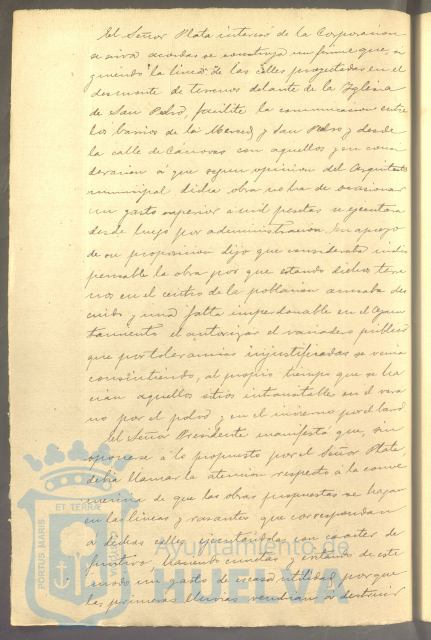 El Señor Plata interesó de la Corporacion
se sirva acordar se construya un firme que, si
guiendo la linea de las calles proyectadas en el
desmonte de terrenos delante de la Iglesia
de San Pedro, facilite la comunicacion entre
los barrios de la Merced y San Pedro y desde
la calle de Cánovas con aquellos y en consi
deracion á que segun opinion del Arquitecto
municipal dicha obra no ha de ocasionar
un gasto superior á mil pesetas se ejecutara
desde luego por administracion. En apoyo
de su proposicion dijo que consideraba indis
pensable la obra por que estando dichos terre
nos en el centro de la poblacion acusaba des
cuido y una falta imperdonable en el Ayun
tamiento el autorizar el vaciadero público
que por tolerancias injustificadas se venia
consintiendo, al propio tiempo que se ha
cian aquellos sitios intransitable en el vera
no por el polvo y en el invierno por el barro
El Señor Presidente manifestó que, sin
oponerse á lo propuesto por el Señor Plata
debia llamar la atencion respecto á la conve
niencia de que las obras propuestas se hagan
en las lineas y rasantes que correspondan
á dichas calles, ejecutándolas con caracter de
finitivo, haciendo cunetas y evitando de este
modo un gasto de escasa utilidad, porque
las primeras lluvias vendrian á destruir
PORTUS MARIS ET TERRÆ
Ayuntamiento de
HUELVA